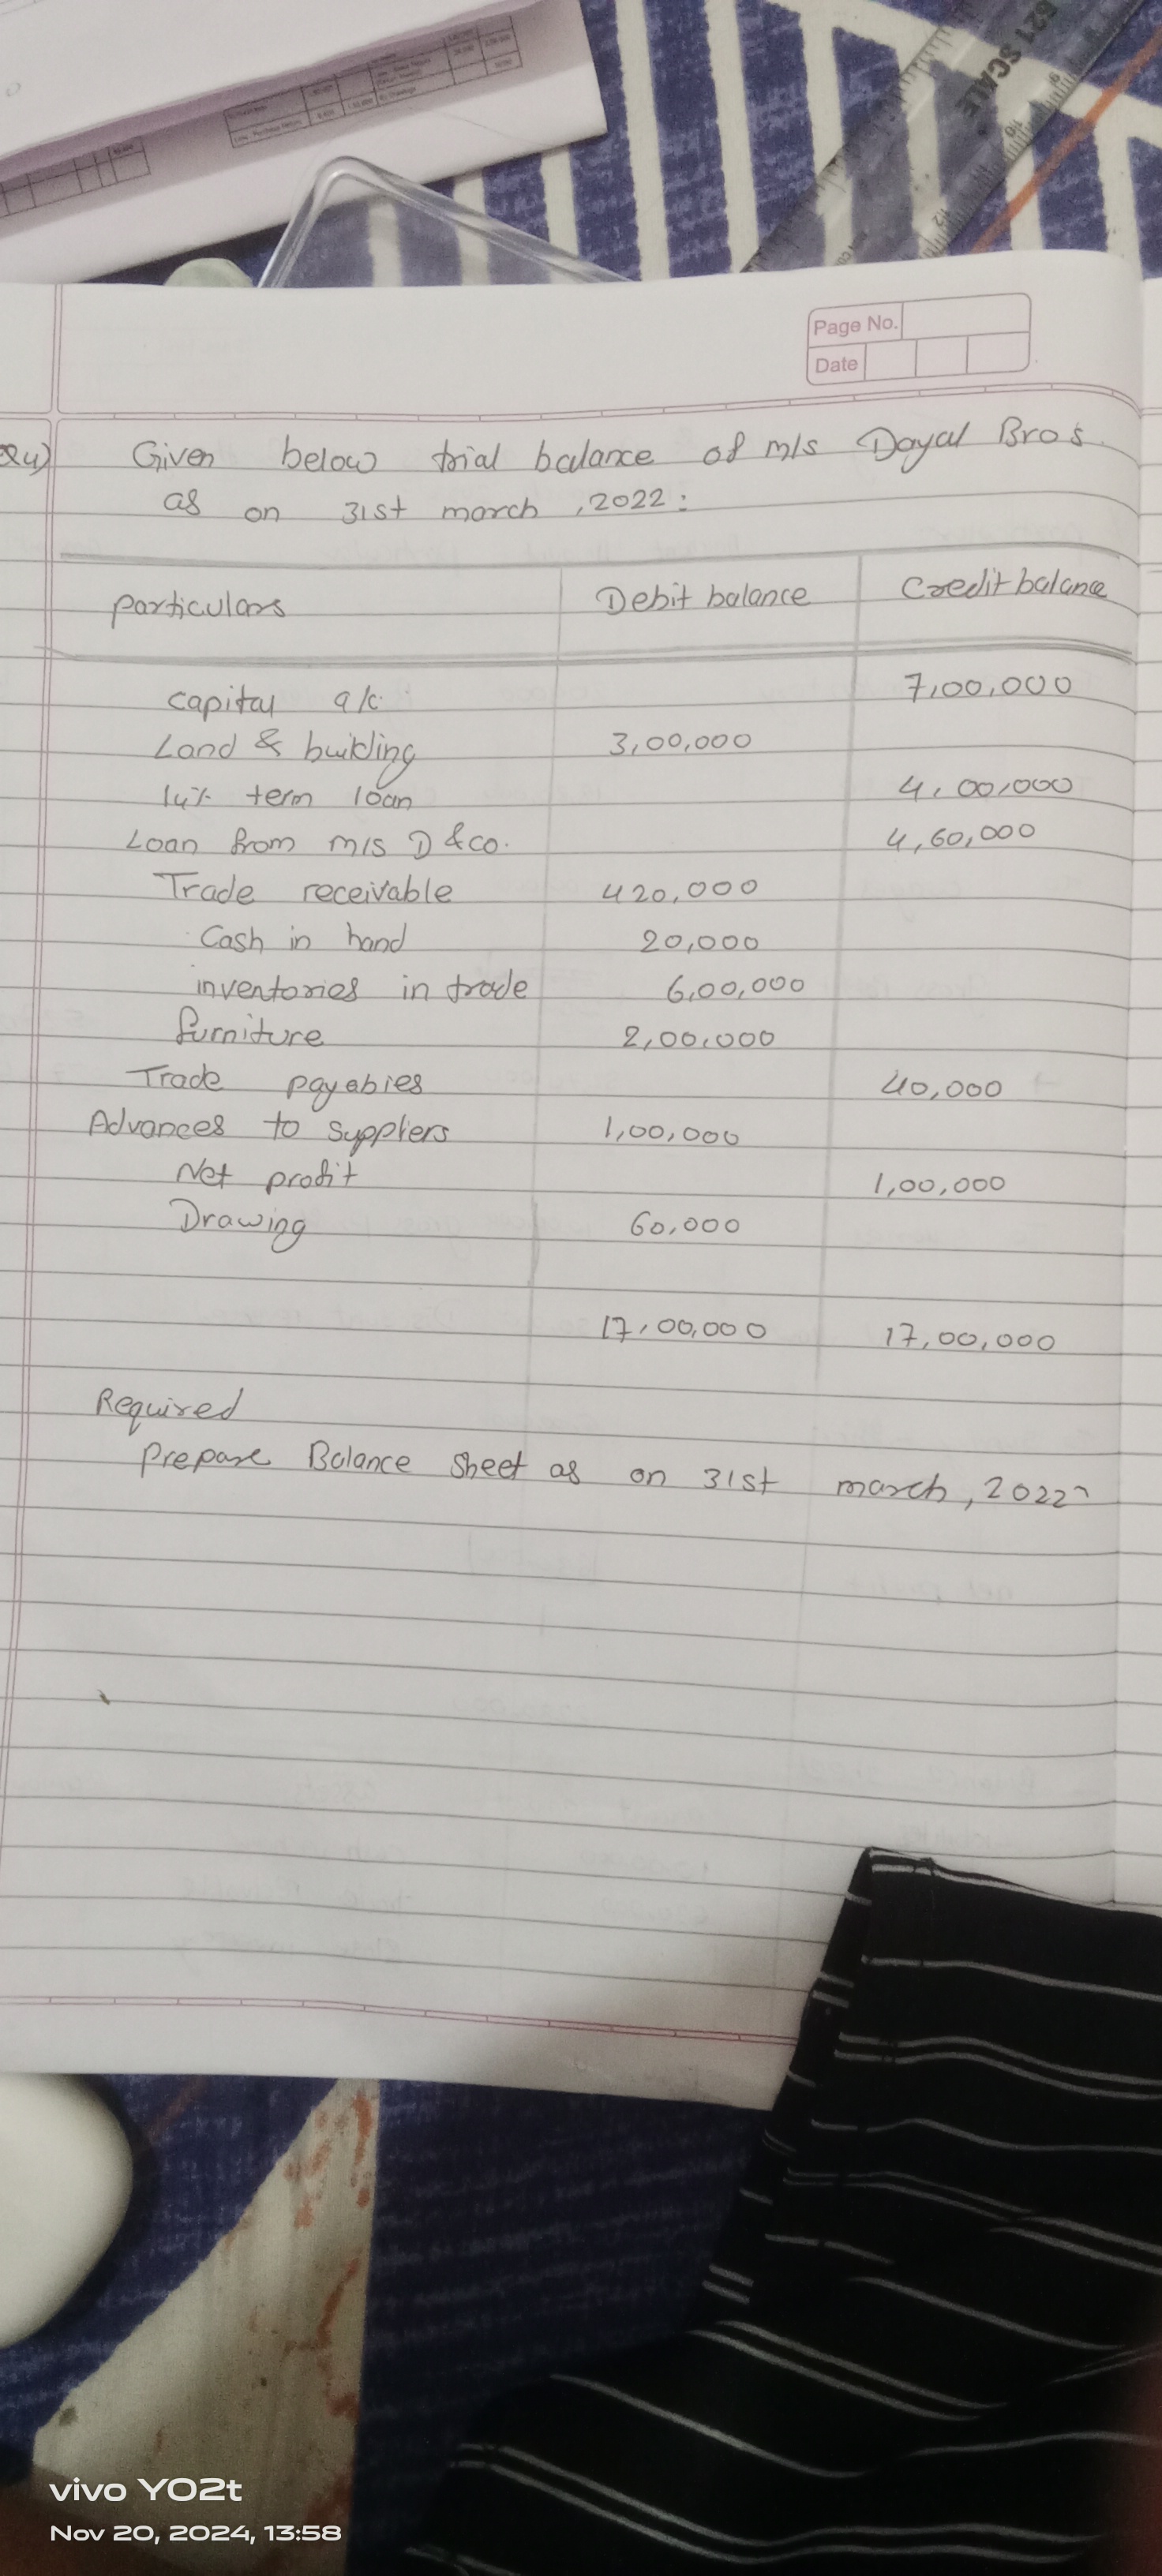 621 SCALE
Page No.
Date
Q4) Given below trial balance of m/s Dayal Bros
as on 31st march ,2022:
particulars Debit balance Credit balance
capital a/c 7,00,000
Land & building 3,00,000
14% term loan 4,00,000
Loan from m/s D & co. 4,60,000
Trade receivable 420,000
Cash in hand 20,000
inventories in trade 6,00,000
furniture 2,00,000
Trade payabies 40,000
Advances to suppliers 1,00,000
Net profit 1,00,000
Drawing 60,000
17,00,000 17,00,000
Required
Prepare Balance Sheet as on 31st march, 2022
vivo Y02t
Nov 20, 2024, 13:58